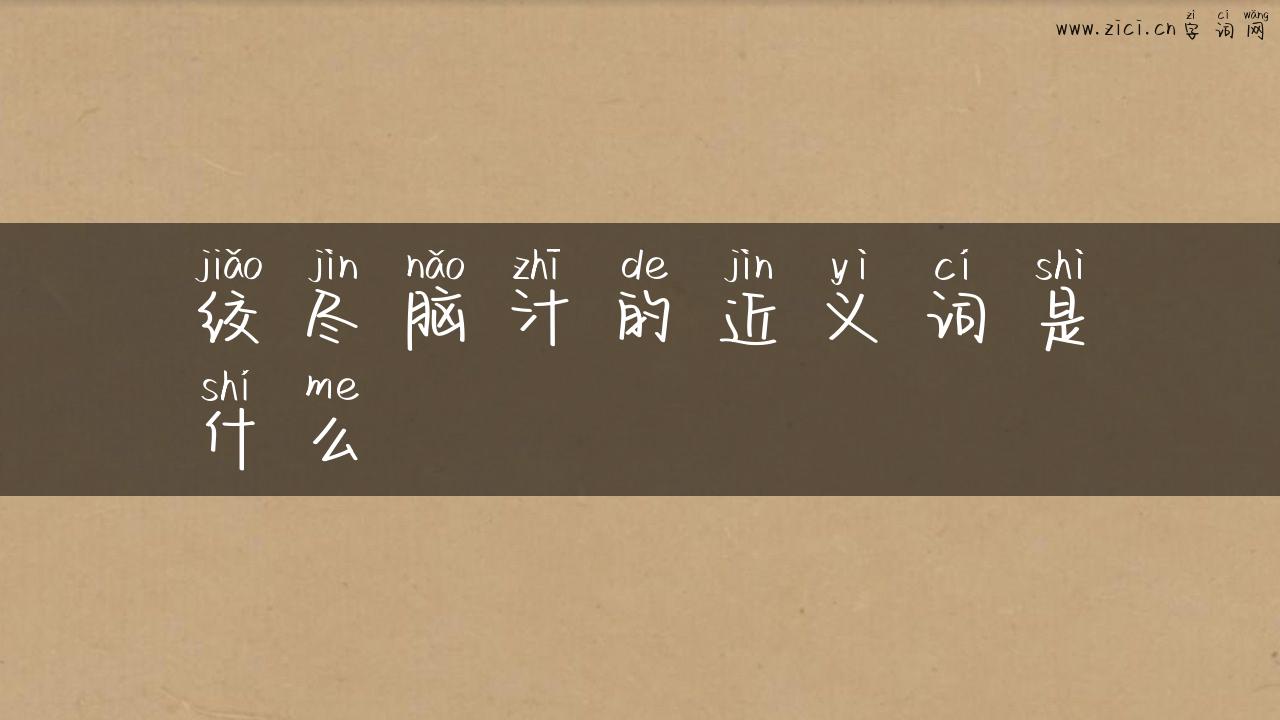 www.zici.cn 字词网
zì cí wǎng
jiǎo jìn nǎo zhī de jìn yì cí shì
绞尽脑汁的近义词是
shí me
什么